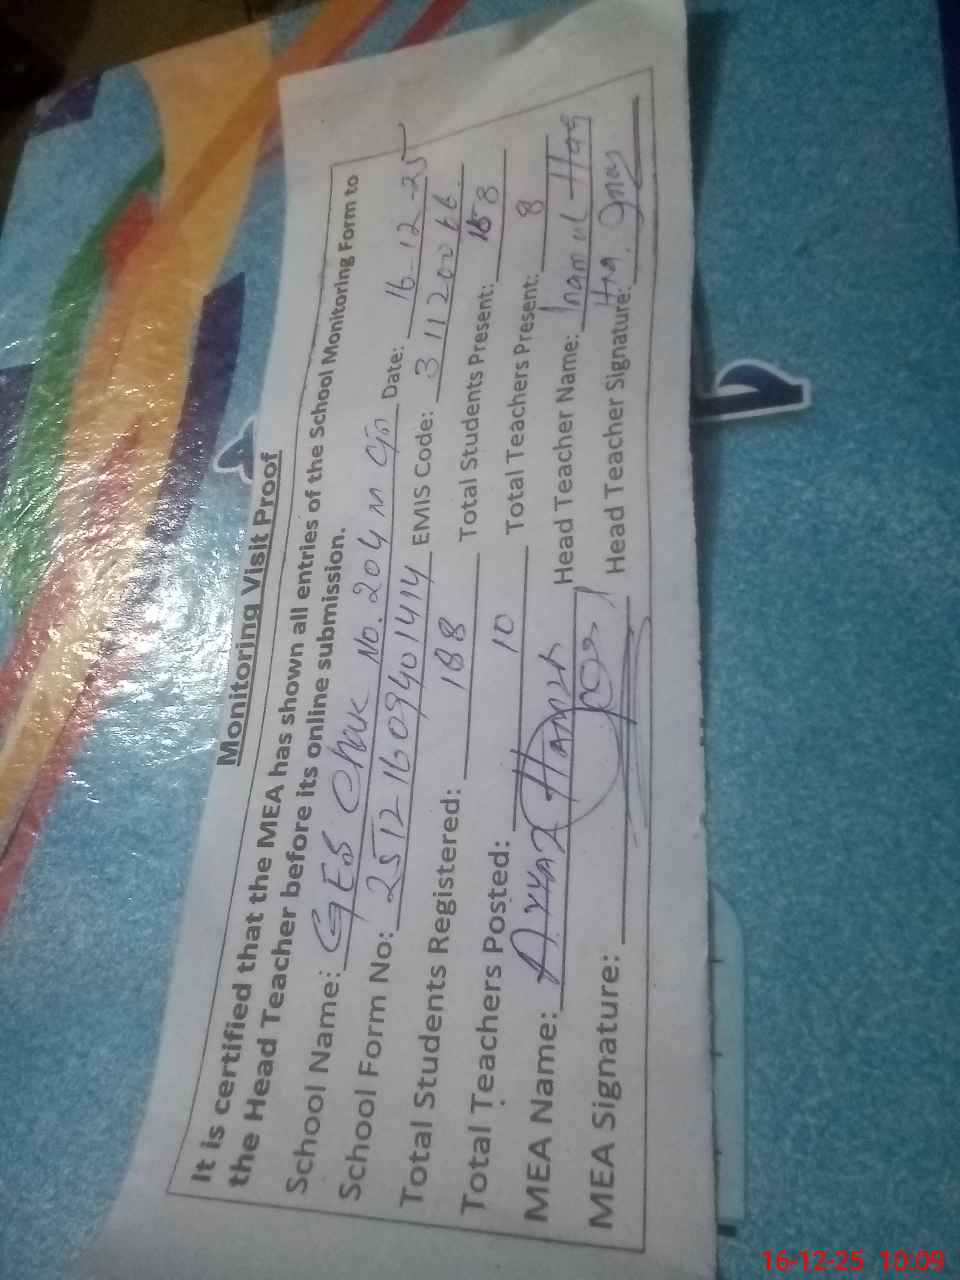 Monitoring Visit Proof
It is certified that the MEA has shown all entries of the School Monitoring Form to
the Head Teacher before its online submission.
School Name: GES Chak No. 204 M Date: 16-12-25
School Form No: 25121609401414 EMIS Code: 31120066
Total Students Registered: 188 Total Students Present: 158
Total Teachers Posted: 10 Total Teachers Present: 8
MEA Name: Ayyaz Hamza Head Teacher Name: Inam ul Haq
MEA Signature: Head Teacher Signature:
16-12-25 10:09